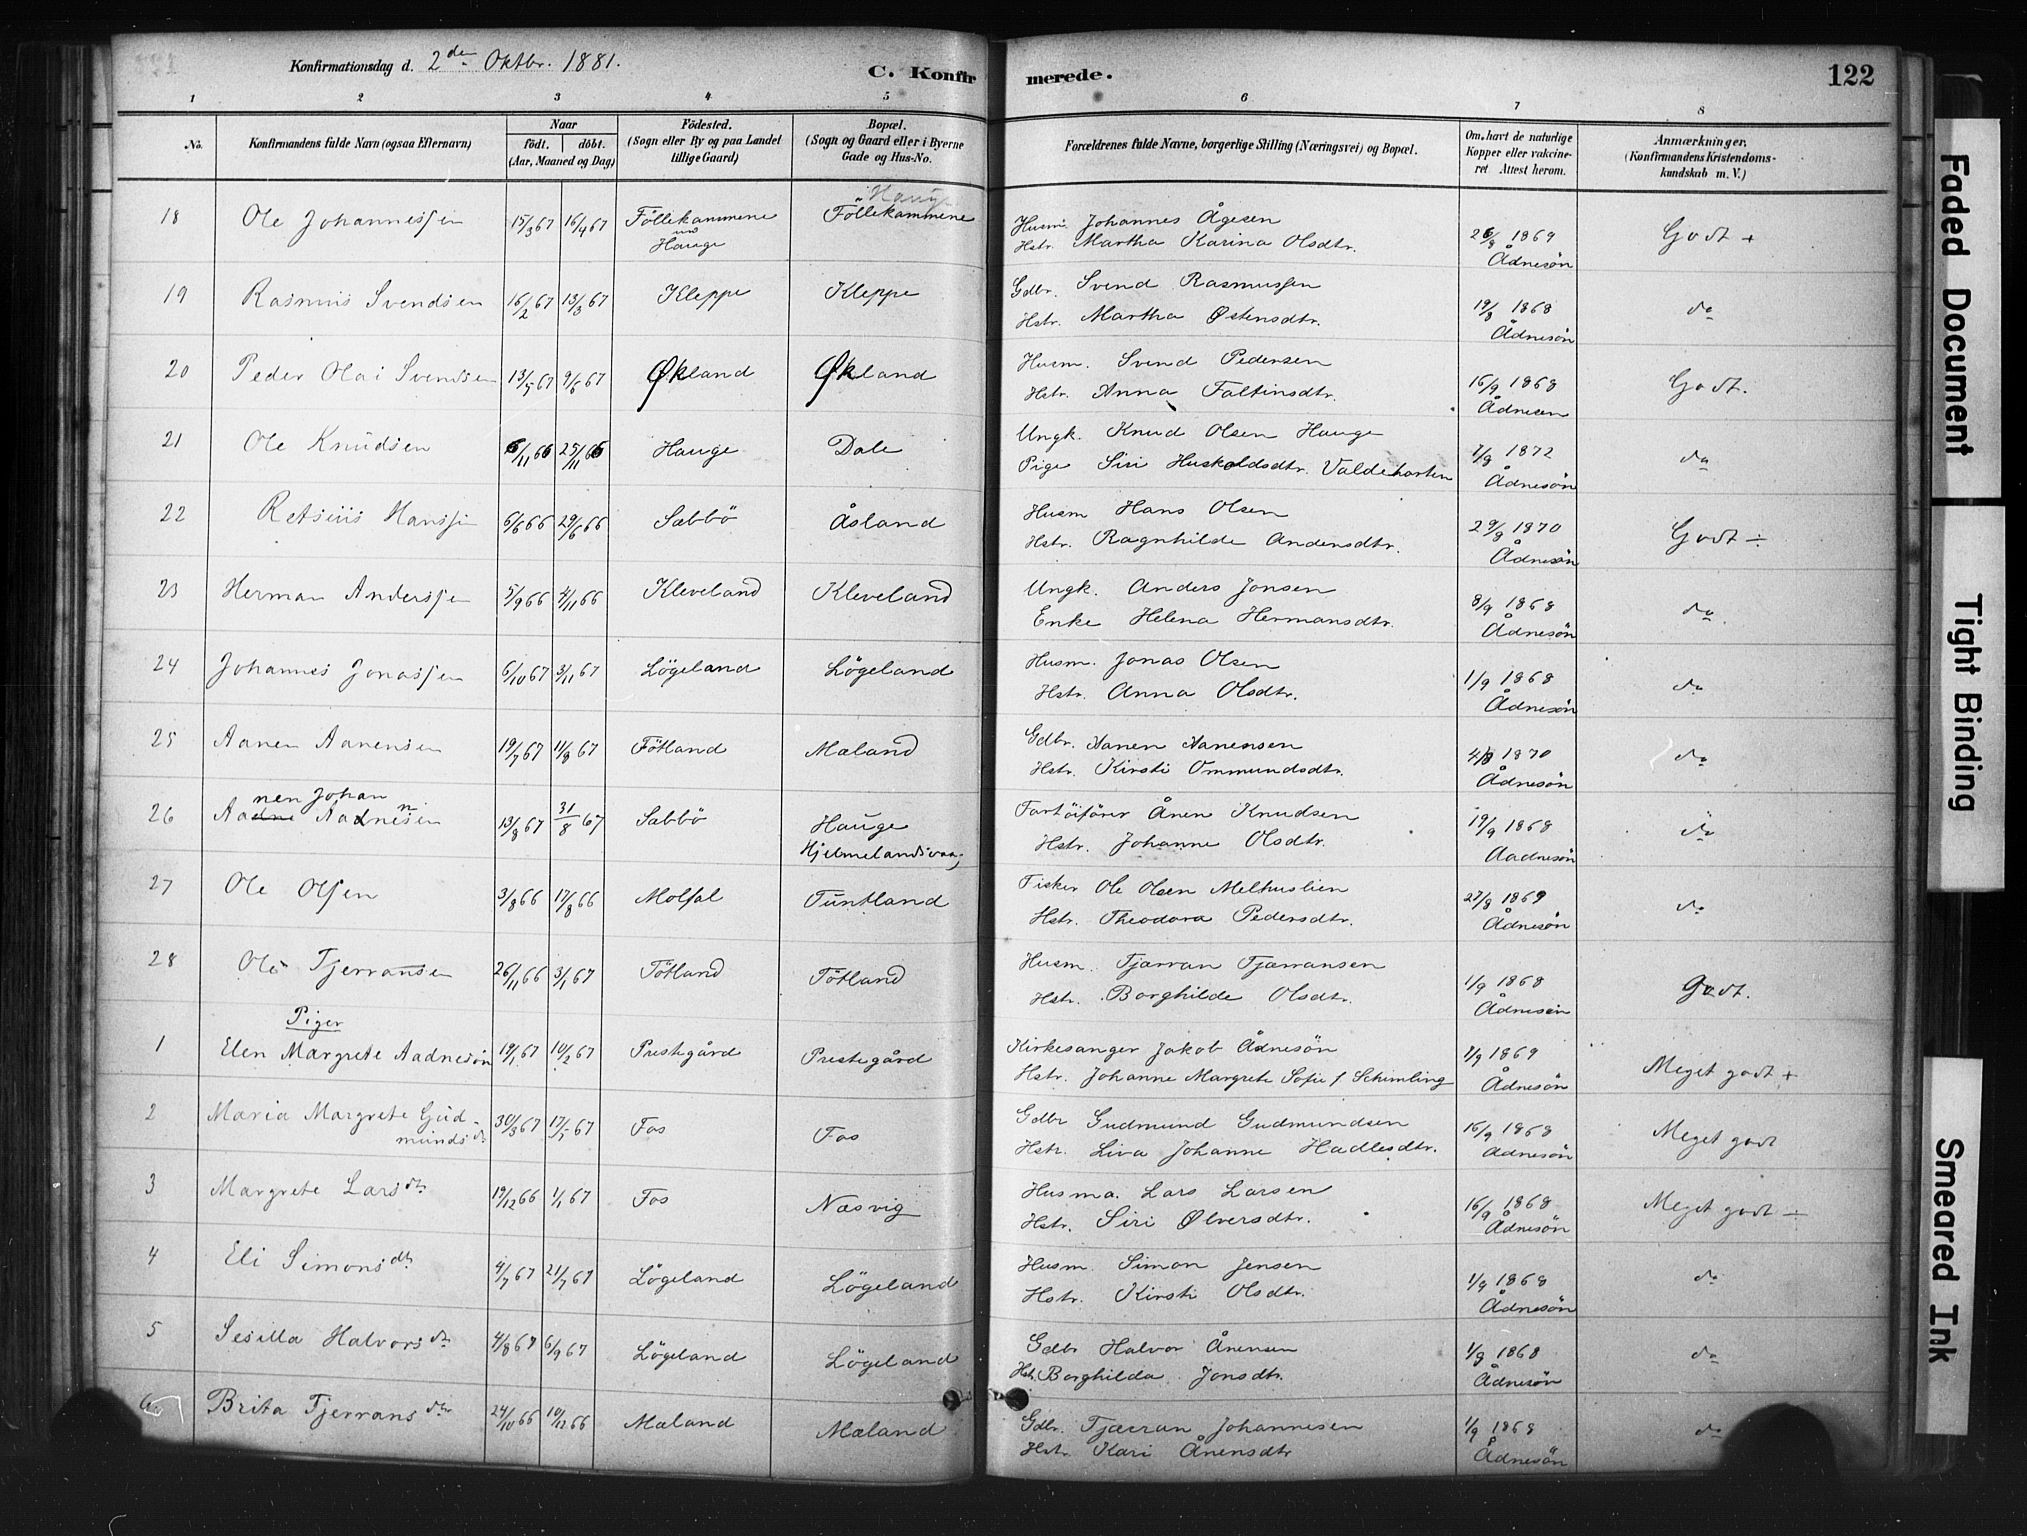 Konfirmationsdag d. 2den Oktbr. 1881.
C. Konfirmerede.
122
1 2 3 4 5 6 7 8
No.
Konfirmandens fulde Navn (ogsaa Efternavn)
Naar
födt. döbt.
(Aar, Maaned og Dag)
Födested.
(Sogn eller By og paa Landet
tillige Gaard)
Bopæl.
(Sogn og Gaard eller i Byerne
Gade og Hus-No.
Forældrenes fulde Navne, borgerlige Stilling (Næringsvei) og Bopæl.
Om havt de naturlige
Kopper eller vakcine-
ret Attest herom.
Anmærkninger.
(Konfirmandens Kristendoms-
kundskab m. V.)
18 Ole Johannessen 15/3 67 16/4 67 Föllekammene und Hauge Föllekammene Hauge
Husm. Johannes Ågesen
Hstr. Martha Karina Olsdtr. 26/8 1869 Ådnesön Godt +
19 Rasmus Svendsen 16/2 67 13/3 67 Kleppe Kleppe
Gdbr. Svend Rasmussen
Hstr. Martha Østensdtr. 19/8 1868 Ådnesön do
20 Peder Olai Svendsen 13/5 67 9/6 67 Økland Økland
Husm. Svend Pedersen
Hstr. Anna Faltinsdtr. 16/9 1868 Ådnesen Godt.
21 Ole Knudsen 6/11 66 25/11 66 Hauge Dale
Ungk. Knud Olsen Hauge
Pige Siri Huskoldsdtr. 7/8 1872 Ådnesön do
22 Retsius Hanssen 6/6 66 29/6 66 Sæbbö Åsland
Husm Hans Olsen
Hstr. Ragnhilde Andersdtr. 29/8 1870 Ådnesön Godt ÷
23 Herman Anderssen 5/9 66 4/11 66 Kleveland Kleveland
Ungk. Anders Jonsen
Enke Helena Hermansdtr. 8/9 1868 Ådnesön do
24 Johannes Jonassen 6/10 67 3/11 67 Lögeland Lögeland
Husm. Jonas Olsen
Hstr. Anna Olsdtr. 1/9 1868 Ådnesön do
25 Aanen Aanensen 19/7 67 11/8 67 Fötland Mæland
Gdbr. Aanen Aanensen
Hstr. Kirsti Ommundsdtr. 4/8 1870 Ådnesön do
26 Aanen Johan Aanensen 13/8 67 31/8 67 Sæbbö Hauge Hjelmelandsvaag
Fartöiförer Ånen Knudsen
Hstr. Johanne Olsdtr. 19/9 1868 Aadnesön do
27 Ole Olsen 3/8 66 17/8 66 Molfal Tuntland
Fisker Ole Olsen Melhuslien
Hstr. Theodora Pedersdtr. 27/8 1869 Ådnesön do
28 Ole Tjerransen 26/11 66 3/1 67 Tötland Tötland
Husm. Tjærran Tjærransen
Hstr. Borghilde Olsdtr. 1/9 1868 Ådnesön Godt.
Piger
1 Elen Margrete Aadnesön 19/1 67 10/2 67 Prestegård Prestegård
Kirkesanger Jakob Ådnesön
Hstr. Johanne Margrete Sofie f Schimling 1/9 1869 Ådnesön Meget godt +
2 Maria Margrete Gudmundsdtr 30/3 67 17/5 67 Fos Fos
Gdbr Gudmund Gudmundsen
Hstr. Liva Johanne Hadlesdtr. 16/9 1868 Ådnesön Meget godt
3 Margrete Larsdtr 19/12 66 1/1 67 Fos Næsvig
Husma. Lars Larsen
Hstr. Siri Ølversdtr. 16/9 1868 Ådnesön Meget godt ÷
4 Eli Simonsdtr 4/7 67 21/7 67 Lögeland Lögeland
Husm. Simon Jensen
Hstr. Kirsti Olsdtr. 1/9 1868 Ådnesön do
5 Sesilla Halvorsdtr 4/8 67 6/9 67 Lögeland Lögeland
Gdbr Halvor Ånensen
Hstr. Borghilda Jonsdtr. 1/9 1868 Ådnesön do
6 Brita Tjerransdtr 24/10 66 10/12 66 Mæland Mæland
Gdbr. Tjærran Johannesen
Hstr Kari Ånensdtr 1/9 1868 Ådnesön do
Faded Document
Tight Binding
Smeared Ink